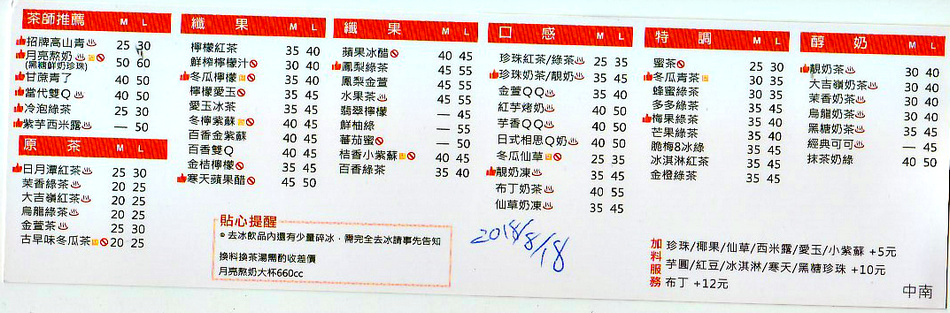 茶師推薦 M L
招牌高山青 25 30
月亮熬奶 50 60
(黑糖鮮奶珍珠)
甘蔗青了 40 50
當代雙Q 40 50
冷泡綠茶 25 30
紫芋西米露 — 50
原茶 M L
日月潭紅茶 25 30
茉香綠茶 20 25
大吉嶺紅茶 20 25
烏龍綠茶 20 25
金萱茶 25 30
古早味冬瓜茶 20 25
纖果 M L
檸檬紅茶 35 40
鮮榨檸檬汁 30 40
冬瓜檸檬 35 45
檸檬愛玉 35 45
愛玉冰茶 35 45
冬檸紫蘇 40 45
百香金紫蘇 40 45
百香雙Q 40 45
金桔檸檬 35 45
寒天蘋果醋 45 50
纖果 M L
蘋果冰醋 40 45
鳳梨綠茶 45 55
鳳梨金萱 45 55
水果茶 45 55
翡翠檸檬 — 45
鮮柚綠 — 55
蕃茄蜜 — 50
桔香小紫蘇 40 45
百香綠茶 35 40
口感 M L
珍珠紅茶/綠茶 25 35
珍珠奶茶/靚奶 35 45
金萱QQ 35 40
紅芋烤奶 40 50
芋香QQ 40 50
日式相思Q奶 40 50
冬瓜仙草 25 35
靚奶凍 35 45
布丁奶茶 40 55
仙草奶凍 35 45
特調 M L
蜜茶 25 30
冬瓜青茶 25 35
蜂蜜綠茶 30 35
多多綠茶 35 45
梅果綠茶 35 40
芒果綠茶 35 40
脆梅8冰綠 35 45
冰淇淋紅茶 35 45
金橙綠茶 35 45
醇奶 M L
靚奶茶 30 40
大吉嶺奶茶 30 40
茉香奶茶 30 40
烏龍奶茶 30 40
黑糖奶茶 35 45
經典可可 — 45
抹茶奶綠 40 50
貼心提醒
去冰飲品內還有少量碎冰，需完全去冰請事先告知
換料換茶湯需酌收差價
月亮熬奶大杯660cc
2018/8/18
加料服務
珍珠/椰果/仙草/西米露/愛玉/小紫蘇 +5元
芋圓/紅豆/冰淇淋/寒天/黑糖珍珠 +10元
布丁 +12元
中南